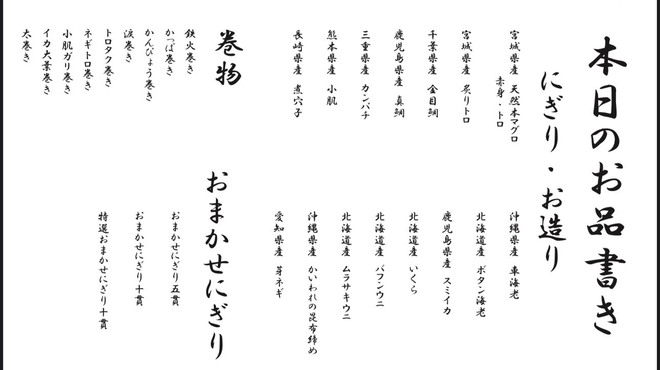 本日のお品書き
にぎり・お造り
宮城県産 天然本マグロ
赤身・トロ
宮城県産 炙りトロ
千葉県産 金目鯛
鹿児島県産 真鯛
三重県産 カンパチ
熊本県産 小肌
長崎県産 煮穴子
沖縄県産 車海老
北海道産 ボタン海老
鹿児島県産 スミイカ
北海道産 いくら
北海道産 バフンウニ
北海道産 ムラサキウニ
沖縄県産 かいわれの昆布締め
愛知県産 芽ネギ
巻物
鉄火巻き
かっぱ巻き
かんぴょう巻き
涙巻き
トロタク巻き
ネギトロ巻き
小肌ガリ巻き
イカ大葉巻き
太巻き
おまかせにぎり
おまかせにぎり五貫
おまかせにぎり十貫
特選おまかせにぎり十貫